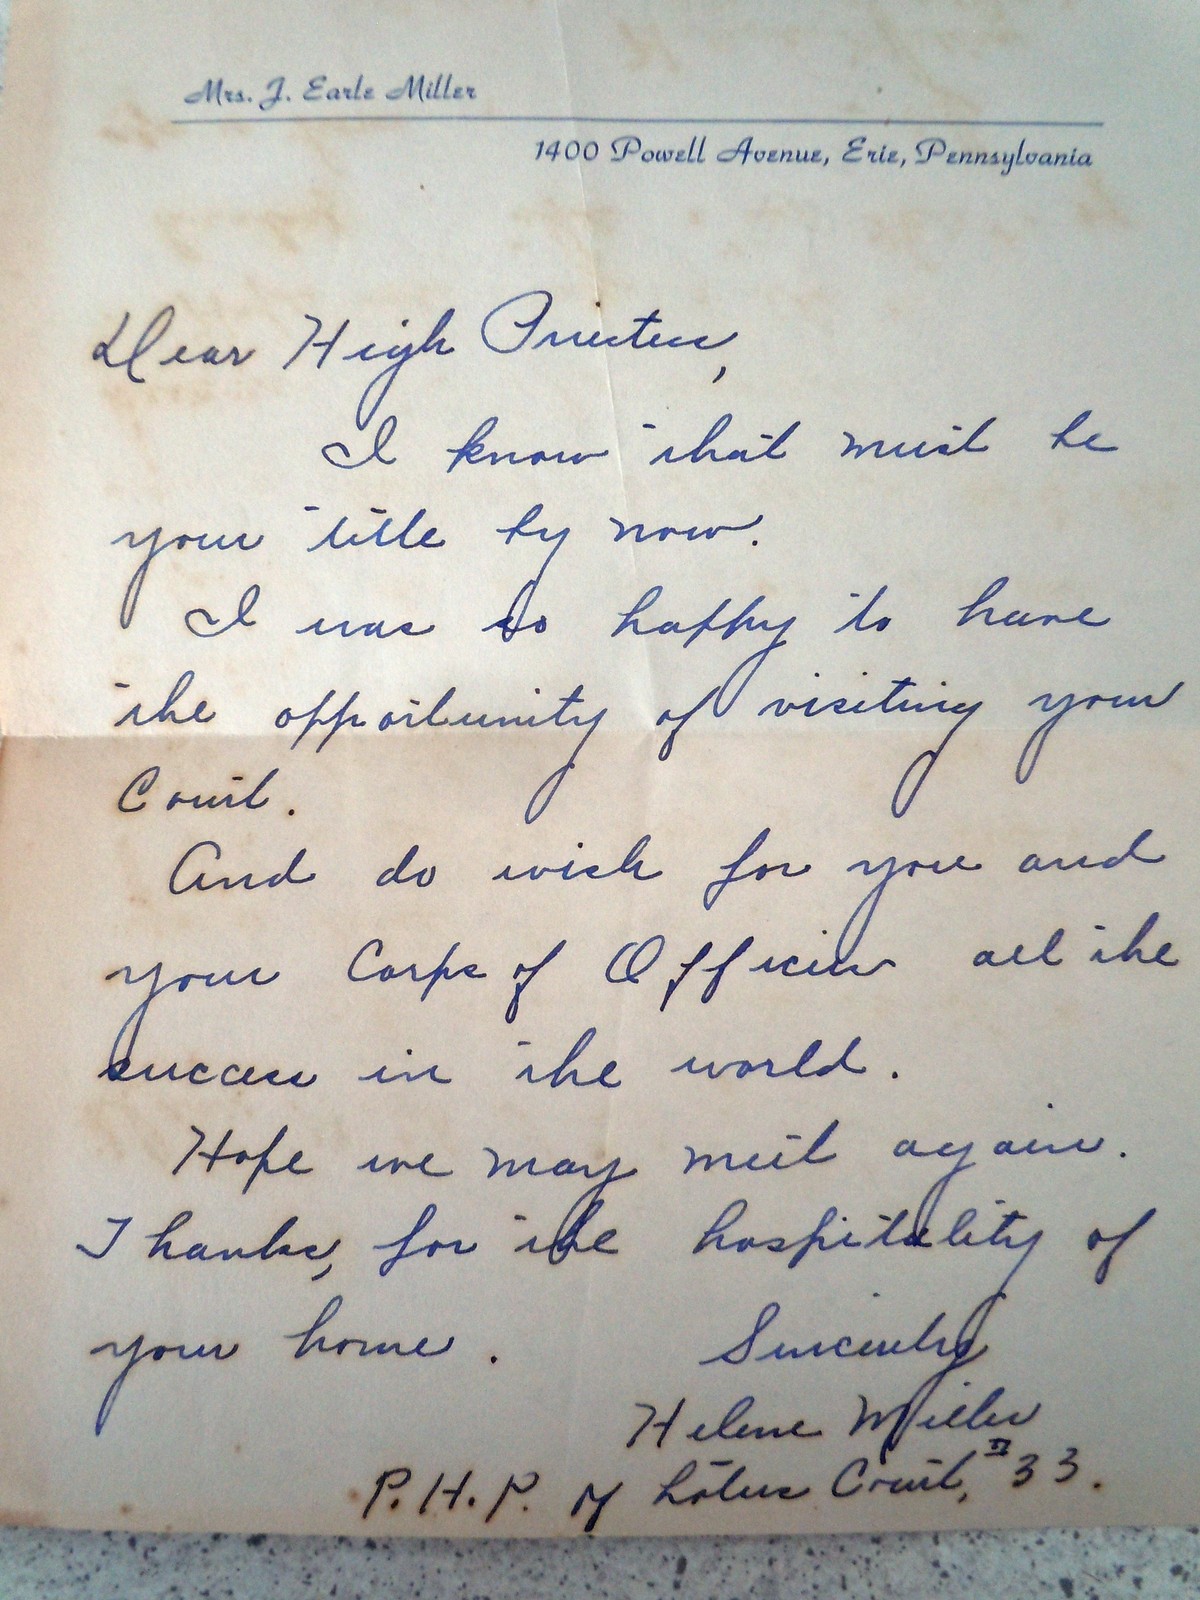 Mrs. J. Earle Miller
1400 Powell Avenue, Erie, Pennsylvania
Dear High Priestess,
I know that must be
your title by now.
I was so happy to have
the opportunity of visiting your
Court.
And do wish for you and
your Corps of Officers all the
success in the world.
Hope we may meet again.
Thanks, for the hospitality of
your home. Sincerely
Helene Miller
P.H.P. of Lotus Court, #33.